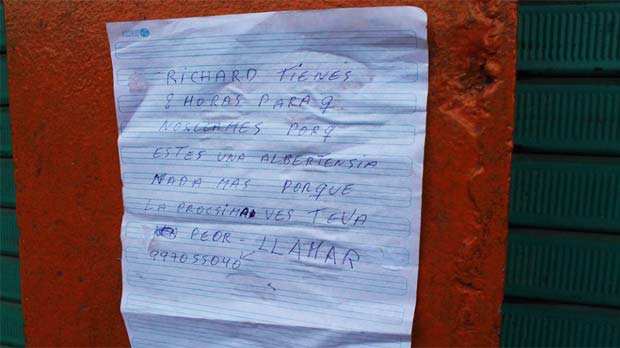 RICHARD TIENES
8 HORAS PARA Q
NOS LLAMES PORQ
ESTES UNA ALBERTENSIA
NADA MAS PORQUE
LA PROCSIMA VES TEVA
PEOR - LLAMAR
997055040